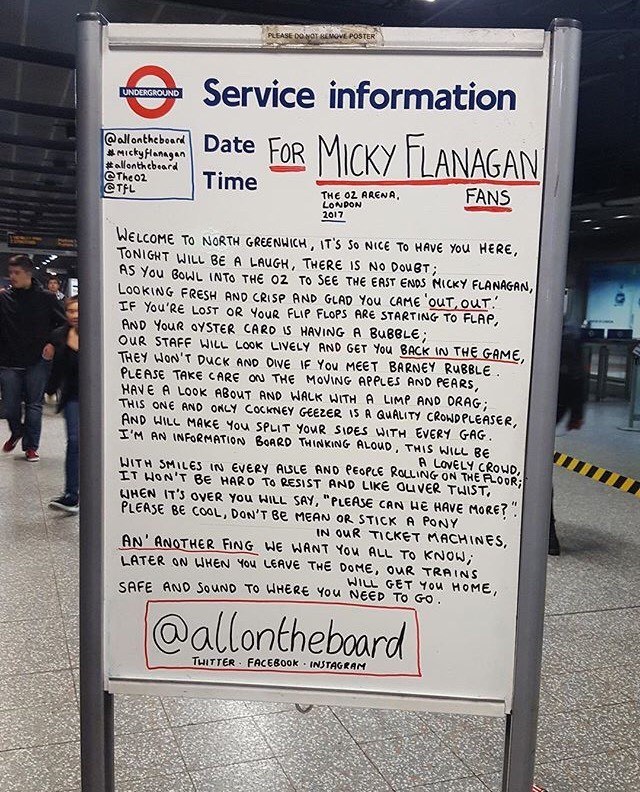 PLEASE DO NOT REMOVE POSTER
UNDERGROUND
Service information
@allontheboard
#mickyflanagan
#allontheboard
@TheO2
@TFL
Date
Time
FOR MICKY FLANAGAN
FANS
THE O2 ARENA,
LONDON
2017
WELCOME TO NORTH GREENWICH, IT'S SO NICE TO HAVE YOU HERE,
TONIGHT WILL BE A LAUGH, THERE IS NO DOUBT;
AS YOU BOWL INTO THE O2 TO SEE THE EAST ENDS MICKY FLANAGAN,
LOOKING FRESH AND CRISP AND GLAD YOU CAME 'OUT, OUT.'
IF YOU'RE LOST OR YOUR FLIP FLOPS ARE STARTING TO FLAP,
AND YOUR OYSTER CARD IS HAVING A BUBBLE;
OUR STAFF WILL LOOK LIVELY AND GET YOU BACK IN THE GAME,
THEY WON'T DUCK AND DIVE IF YOU MEET BARNEY RUBBLE.
PLEASE TAKE CARE ON THE MOVING APPLES AND PEARS,
HAVE A LOOK ABOUT AND WALK WITH A LIMP AND DRAG;
THIS ONE AND ONLY COCKNEY GEEZER IS A QUALITY CROWDPLEASER,
AND WILL MAKE YOU SPLIT YOUR SIDES WITH EVERY GAG.
I'M AN INFORMATION BOARD THINKING ALOUD, THIS WILL BE
A LOVELY CROWD,
WITH SMILES IN EVERY AISLE AND PEOPLE ROLLING ON THE FLOOR;
IT WON'T BE HARD TO RESIST AND LIKE OLIVER TWIST,
WHEN IT'S OVER YOU WILL SAY, "PLEASE CAN WE HAVE MORE?".
PLEASE BE COOL, DON'T BE MEAN OR STICK A PONY
IN OUR TICKET MACHINES,
AN' ANOTHER FING WE WANT YOU ALL TO KNOW;
LATER ON WHEN YOU LEAVE THE DOME, OUR TRAINS
WILL GET YOU HOME,
SAFE AND SOUND TO WHERE YOU NEED TO GO.
@allontheboard
TWITTER · FACEBOOK · INSTAGRAM